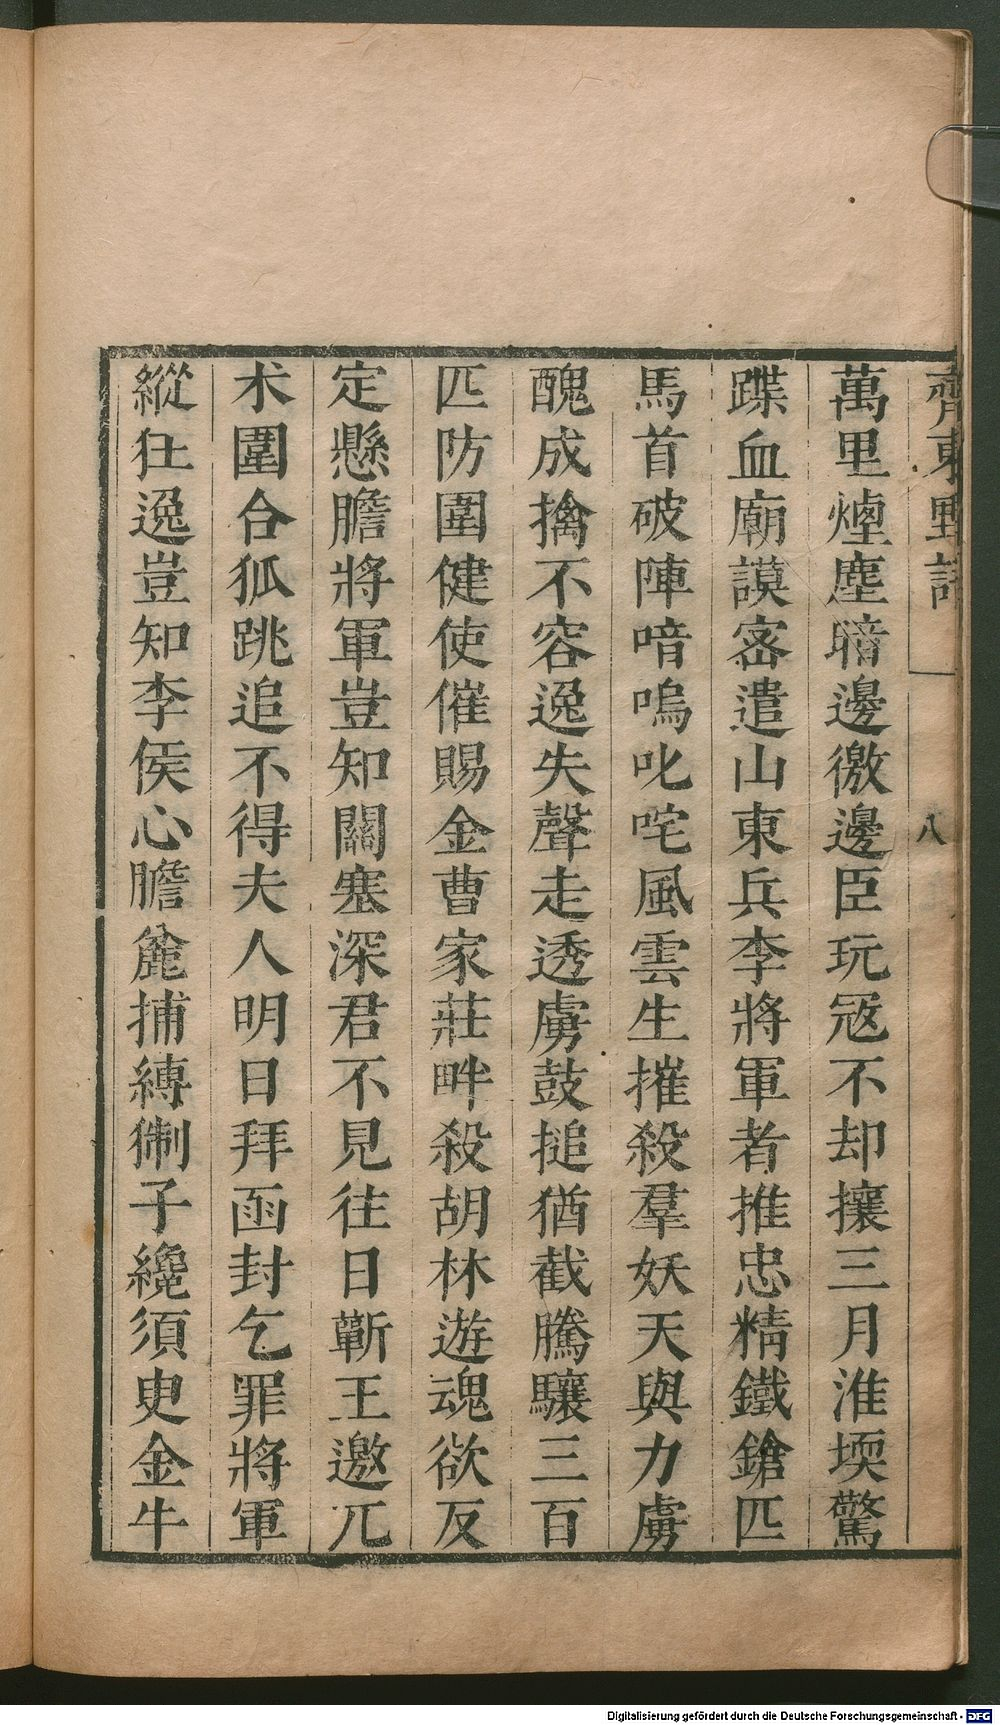 齊東野語
八
萬里煙塵暗邊徼邊臣玩宼不却攘三月淮堧驚
蹀血廟謨宻遣山東兵李將軍者推忠精鐵鎗匹
馬首破陣喑嗚叱咤風雲生摧殺羣妖天與力虜
醜成擒不容逸失聲走透虜鼓搥猶截騰驤三百
匹防圍健使催賜金曹家莊畔殺胡林遊魂欲反
定懸膽將軍豈知關塞深君不見往日蘄王邀兀
术圍合狐跳追不得夫人明日拜函封乞罪將軍
縱狂逸豈知李侯心膽麄捕縛猘子纔須臾金牛
Digitalisierung gefördert durch die Deutsche Forschungsgemeinschaft - DFG